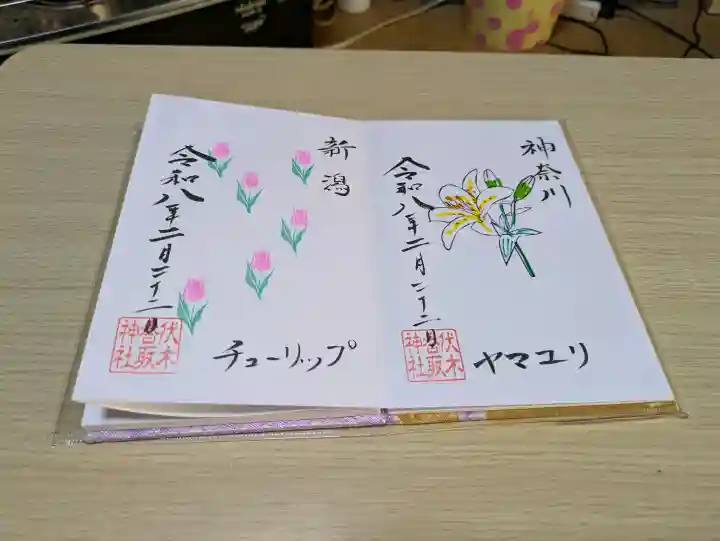 神奈川
令和八年二月二十二日
ヤマユリ
伏木
香取
神社
新潟
令和八年二月二十二日
チューリップ
伏木
香取
神社